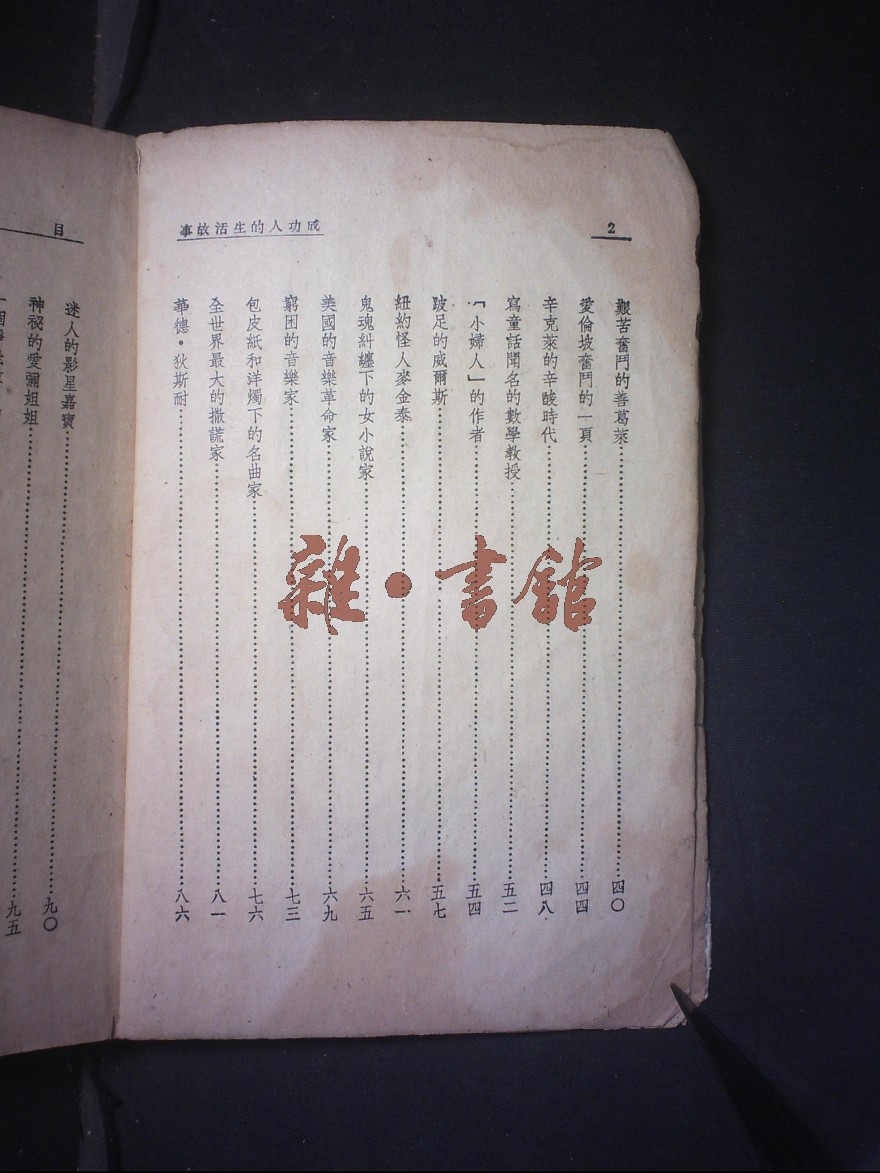 2
事故活生的人功成
艱苦奮鬥的善葛萊……四〇
愛倫坡奮鬥的一頁……四四
辛克萊的辛酸時代……四八
寫童話聞名的數學教授……五二
「小婦人」的作者……五四
跛足的威爾斯……五七
紐約怪人麥金泰……六一
鬼魂糾纏下的女小說家……六五
美國的音樂革命家……六九
窮困的音樂家……七三
包皮紙和洋燭下的名曲家……七六
全世界最大的撒謊家……八一
華德・狄斯耐……八六
目
迷人的影星嘉寶……九〇
神祕的愛彌姐姐……九五
雜・書館